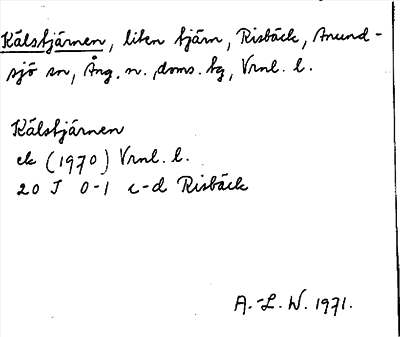 Kälstjärnen, liten tjärn, Risbäck, Anund-
sjö sn, Ång. n. doms. tg, Vrnl. l.
Kälstjärnen
ek (1970) Vrnl. l.
20 J 0-1 c-d Risbäck
A.-L. W. 1971.